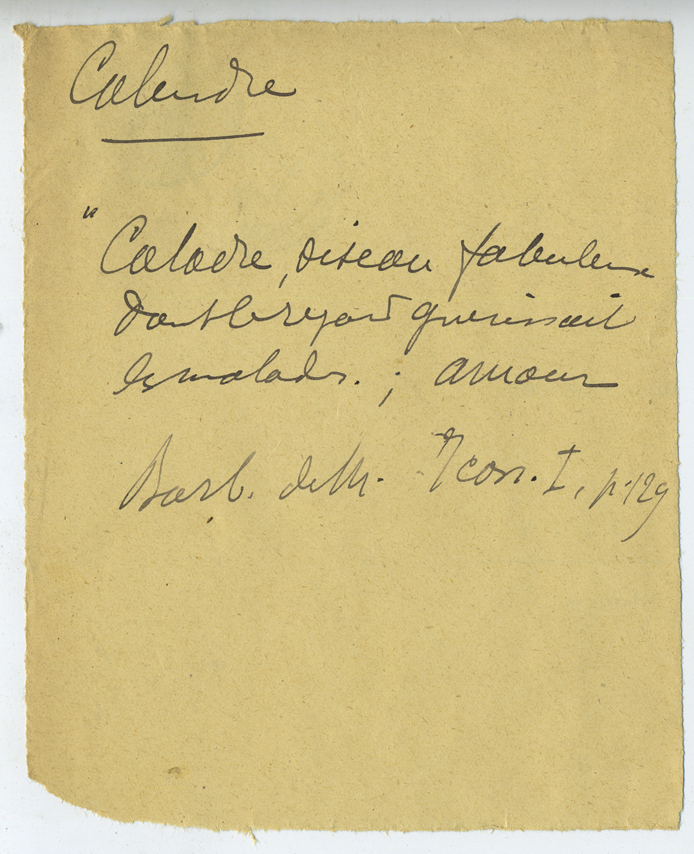 Calendre
" Caladre, oiseau fabuleux
dont le regard guérissait
les malades. ; amour
Barb. de M. Icon. I, p. 129